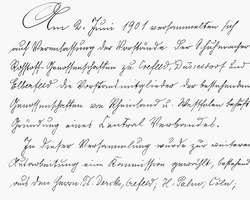 Am 2. Juni 1901 versammelten sich
auf Veranlassung der Vorstände der Schuhmacher
Rohstoff-Genossenschaften zu Crefeld, Düsseldorf und
Elberfeld die Vorstandsmitglieder der bestehenden
Genossenschaften von Rheinland u. Westfalen behufs
Gründung eines Central Verbandes.
In dieser Versammlung wurde zur weiteren
Ausarbeitung eine Kommission gewählt, bestehend
aus den Herren Dercks, Crefeld, H. Palm, Cöln,